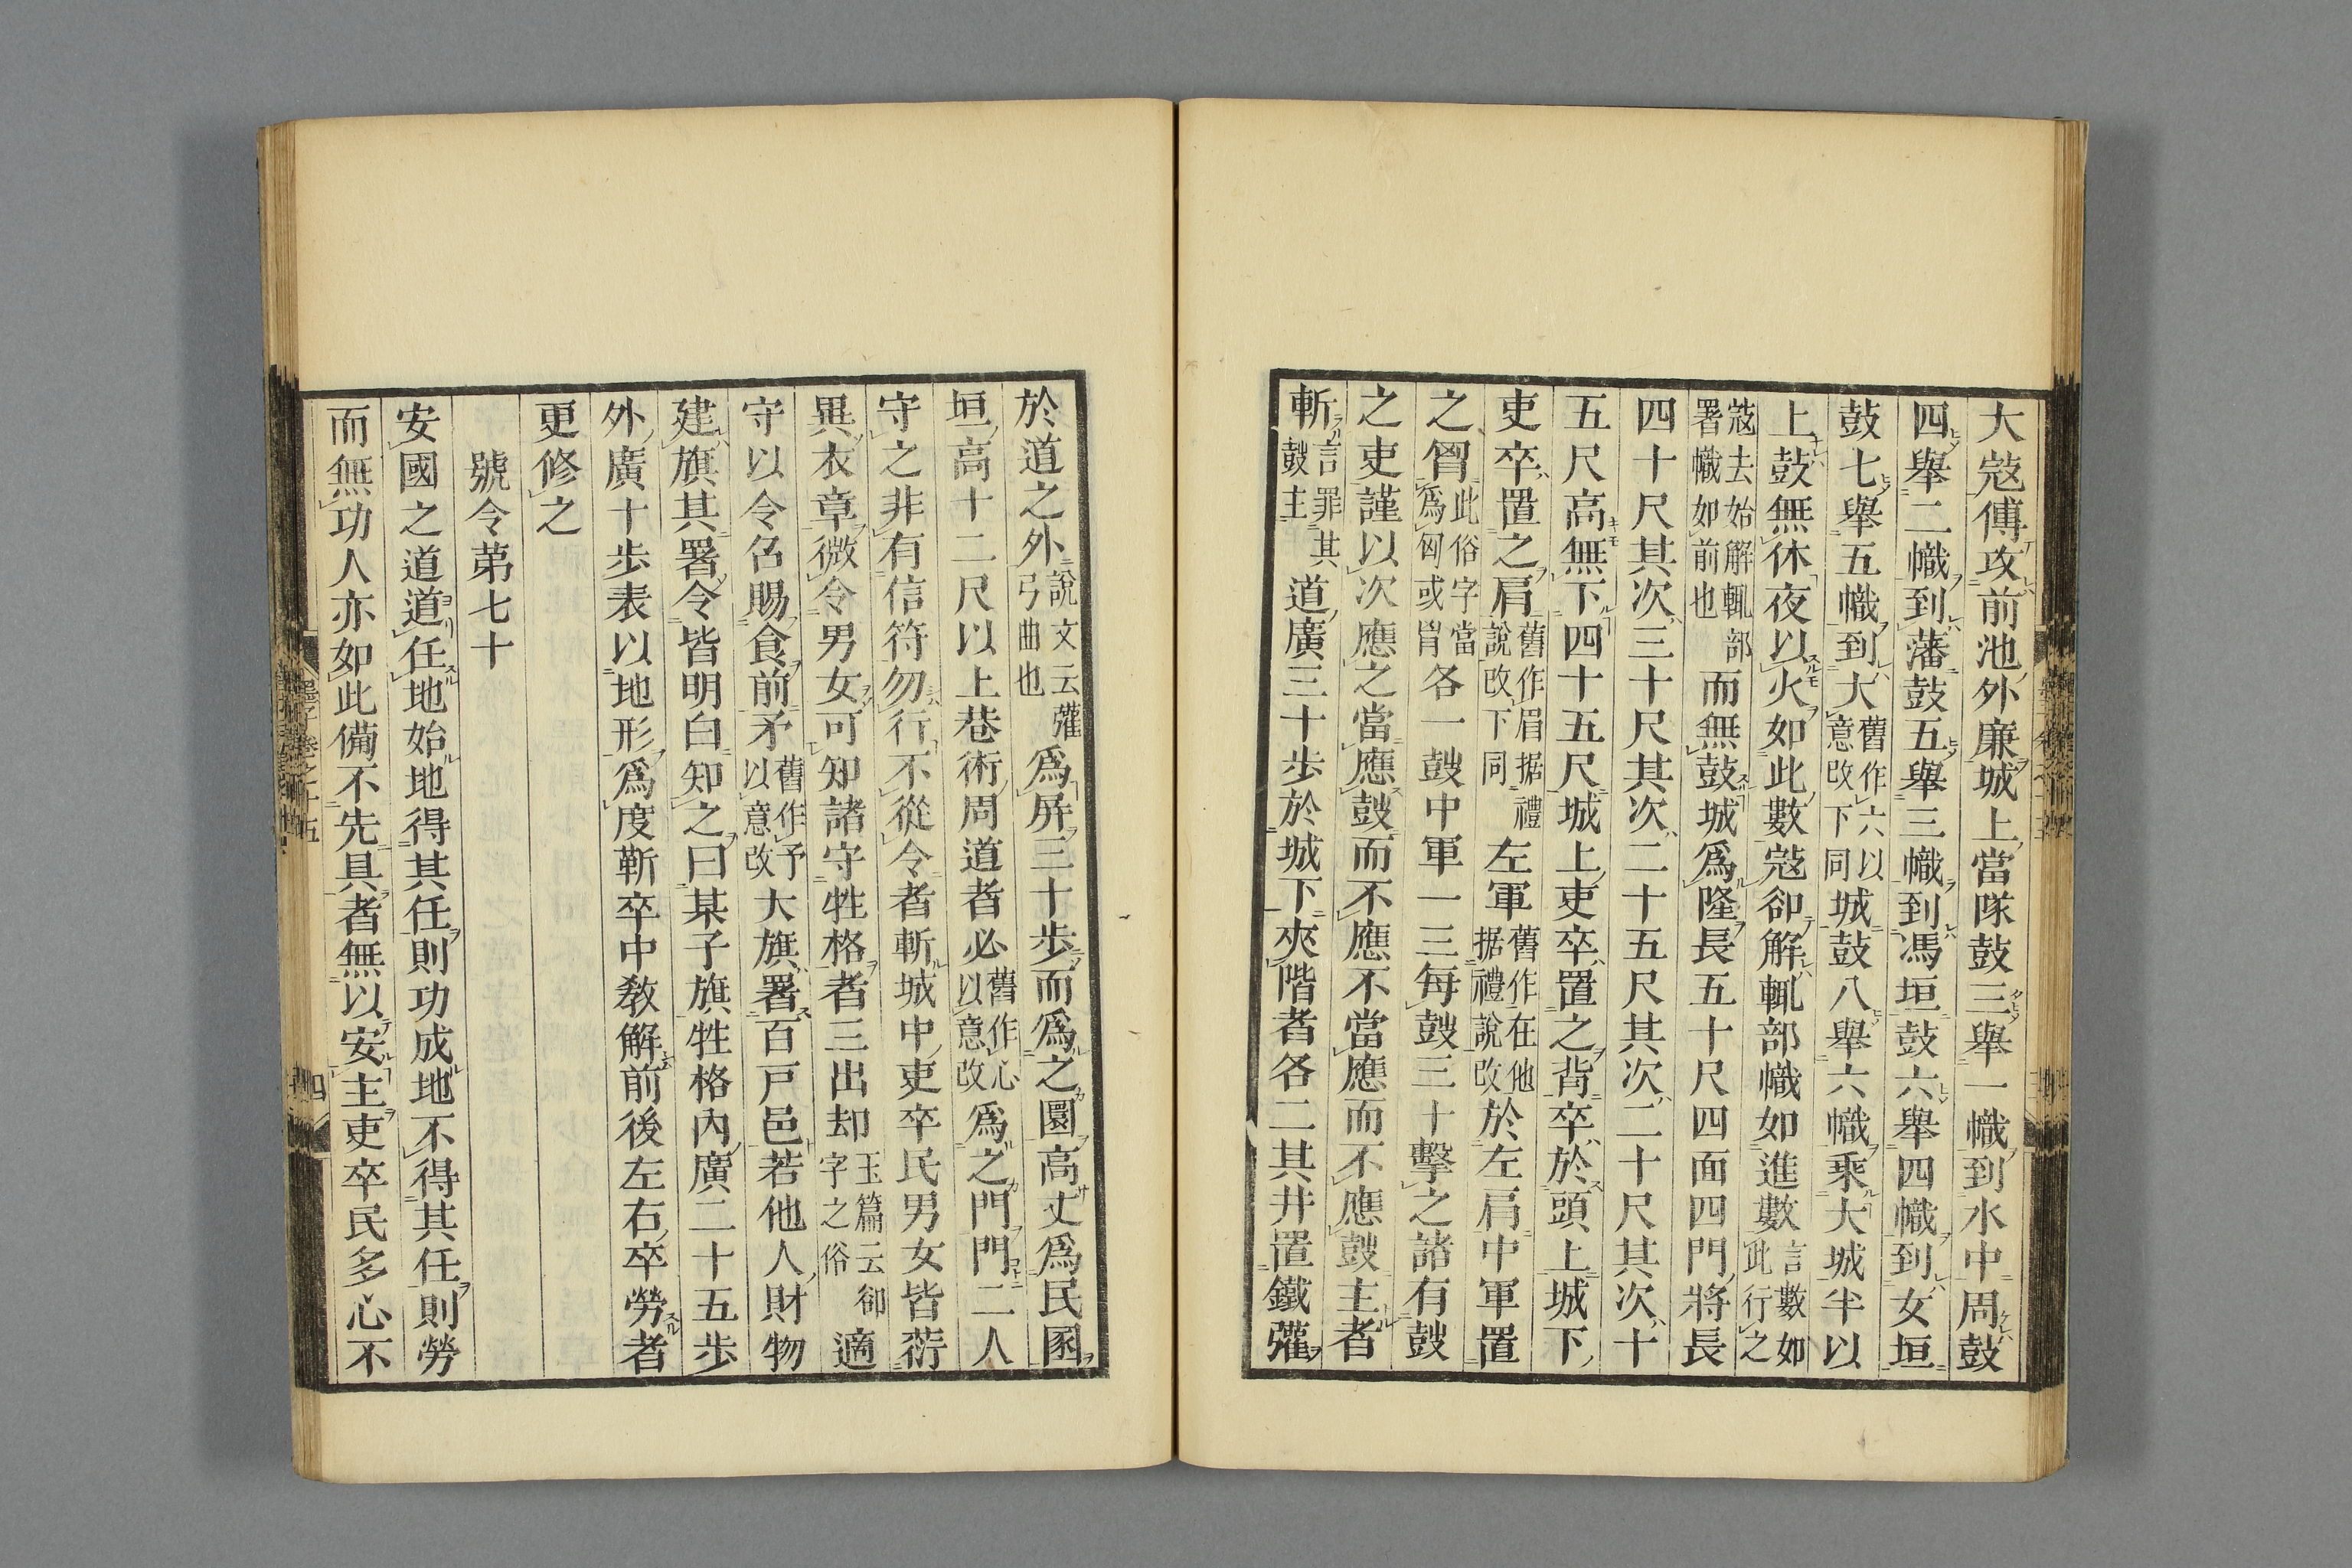 大寇傅攻前池外廉城上當隊鼓三舉一幟到水中周鼓
四舉二幟到藩鼓五舉三幟到馮垣鼓六舉四幟到女垣
鼓七舉五幟到大舊作六以意改下同城鼓八舉六幟乘大城半以
上鼓無休夜以火如此數寇卻解輒部幟如進數言數如此行之
寇去始解輒部署幟如前也而無鼓城爲隆長五十尺四面四門將長
四十尺其次三十尺其次二十五尺其次二十尺其次十
五尺高無下四十五尺城上吏卒置之背卒於頭上城下
吏卒置之肩舊作眉据禮說改下同左軍舊作在他据禮說改於左肩中軍置
之胷此俗字當爲匈或肻各一鼓中軍一三每鼓三十擊之諸有鼓
之吏謹以次應之當應鼓而不應不當應而不應鼓主者
斬言罪其鼓主道廣三十步於城下夾階者各二其井置鐵雚
於道之外說文云雚弓曲也爲屏三十步而爲之圜高丈爲民圂
垣高十二尺以上巷術周道者必舊作心以意改爲之門門二人
守之非有信符勿行不從令者斬城中吏卒民男女皆葕
異衣章微令男女可知諸守牲格者三出却玉篇云卻字之俗適
守以令召賜食前矛舊作予以意改大旗署百戸邑若他人財物
建旗其署令皆明白知之曰某子旗牲格內廣二十五步
外廣十步表以地形爲度靳卒中敎解前後左右卒勞者
更修之
號令第七十
安國之道道任地始地得其任則功成地不得其任則勞
而無功人亦如此備不先具者無以安主吏卒民多心不
墨子卷之十五
四